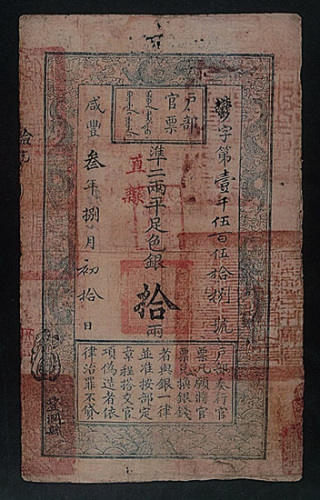 字第壹千伍百伍拾捌號
戶部
官票
準二兩平足色銀拾兩
直隸
咸豐叁年捌月初拾日
戶部奏行官
票凡願將官
票兌換銀錢
者與銀一律
並准按部定
章程搭交官
項偽造者依
律治罪不貸